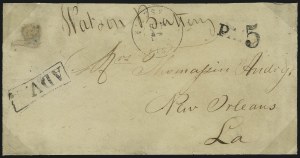 Watson Battery
P 5
ADV
Mrs Thomassin Andry
New Orleans
La